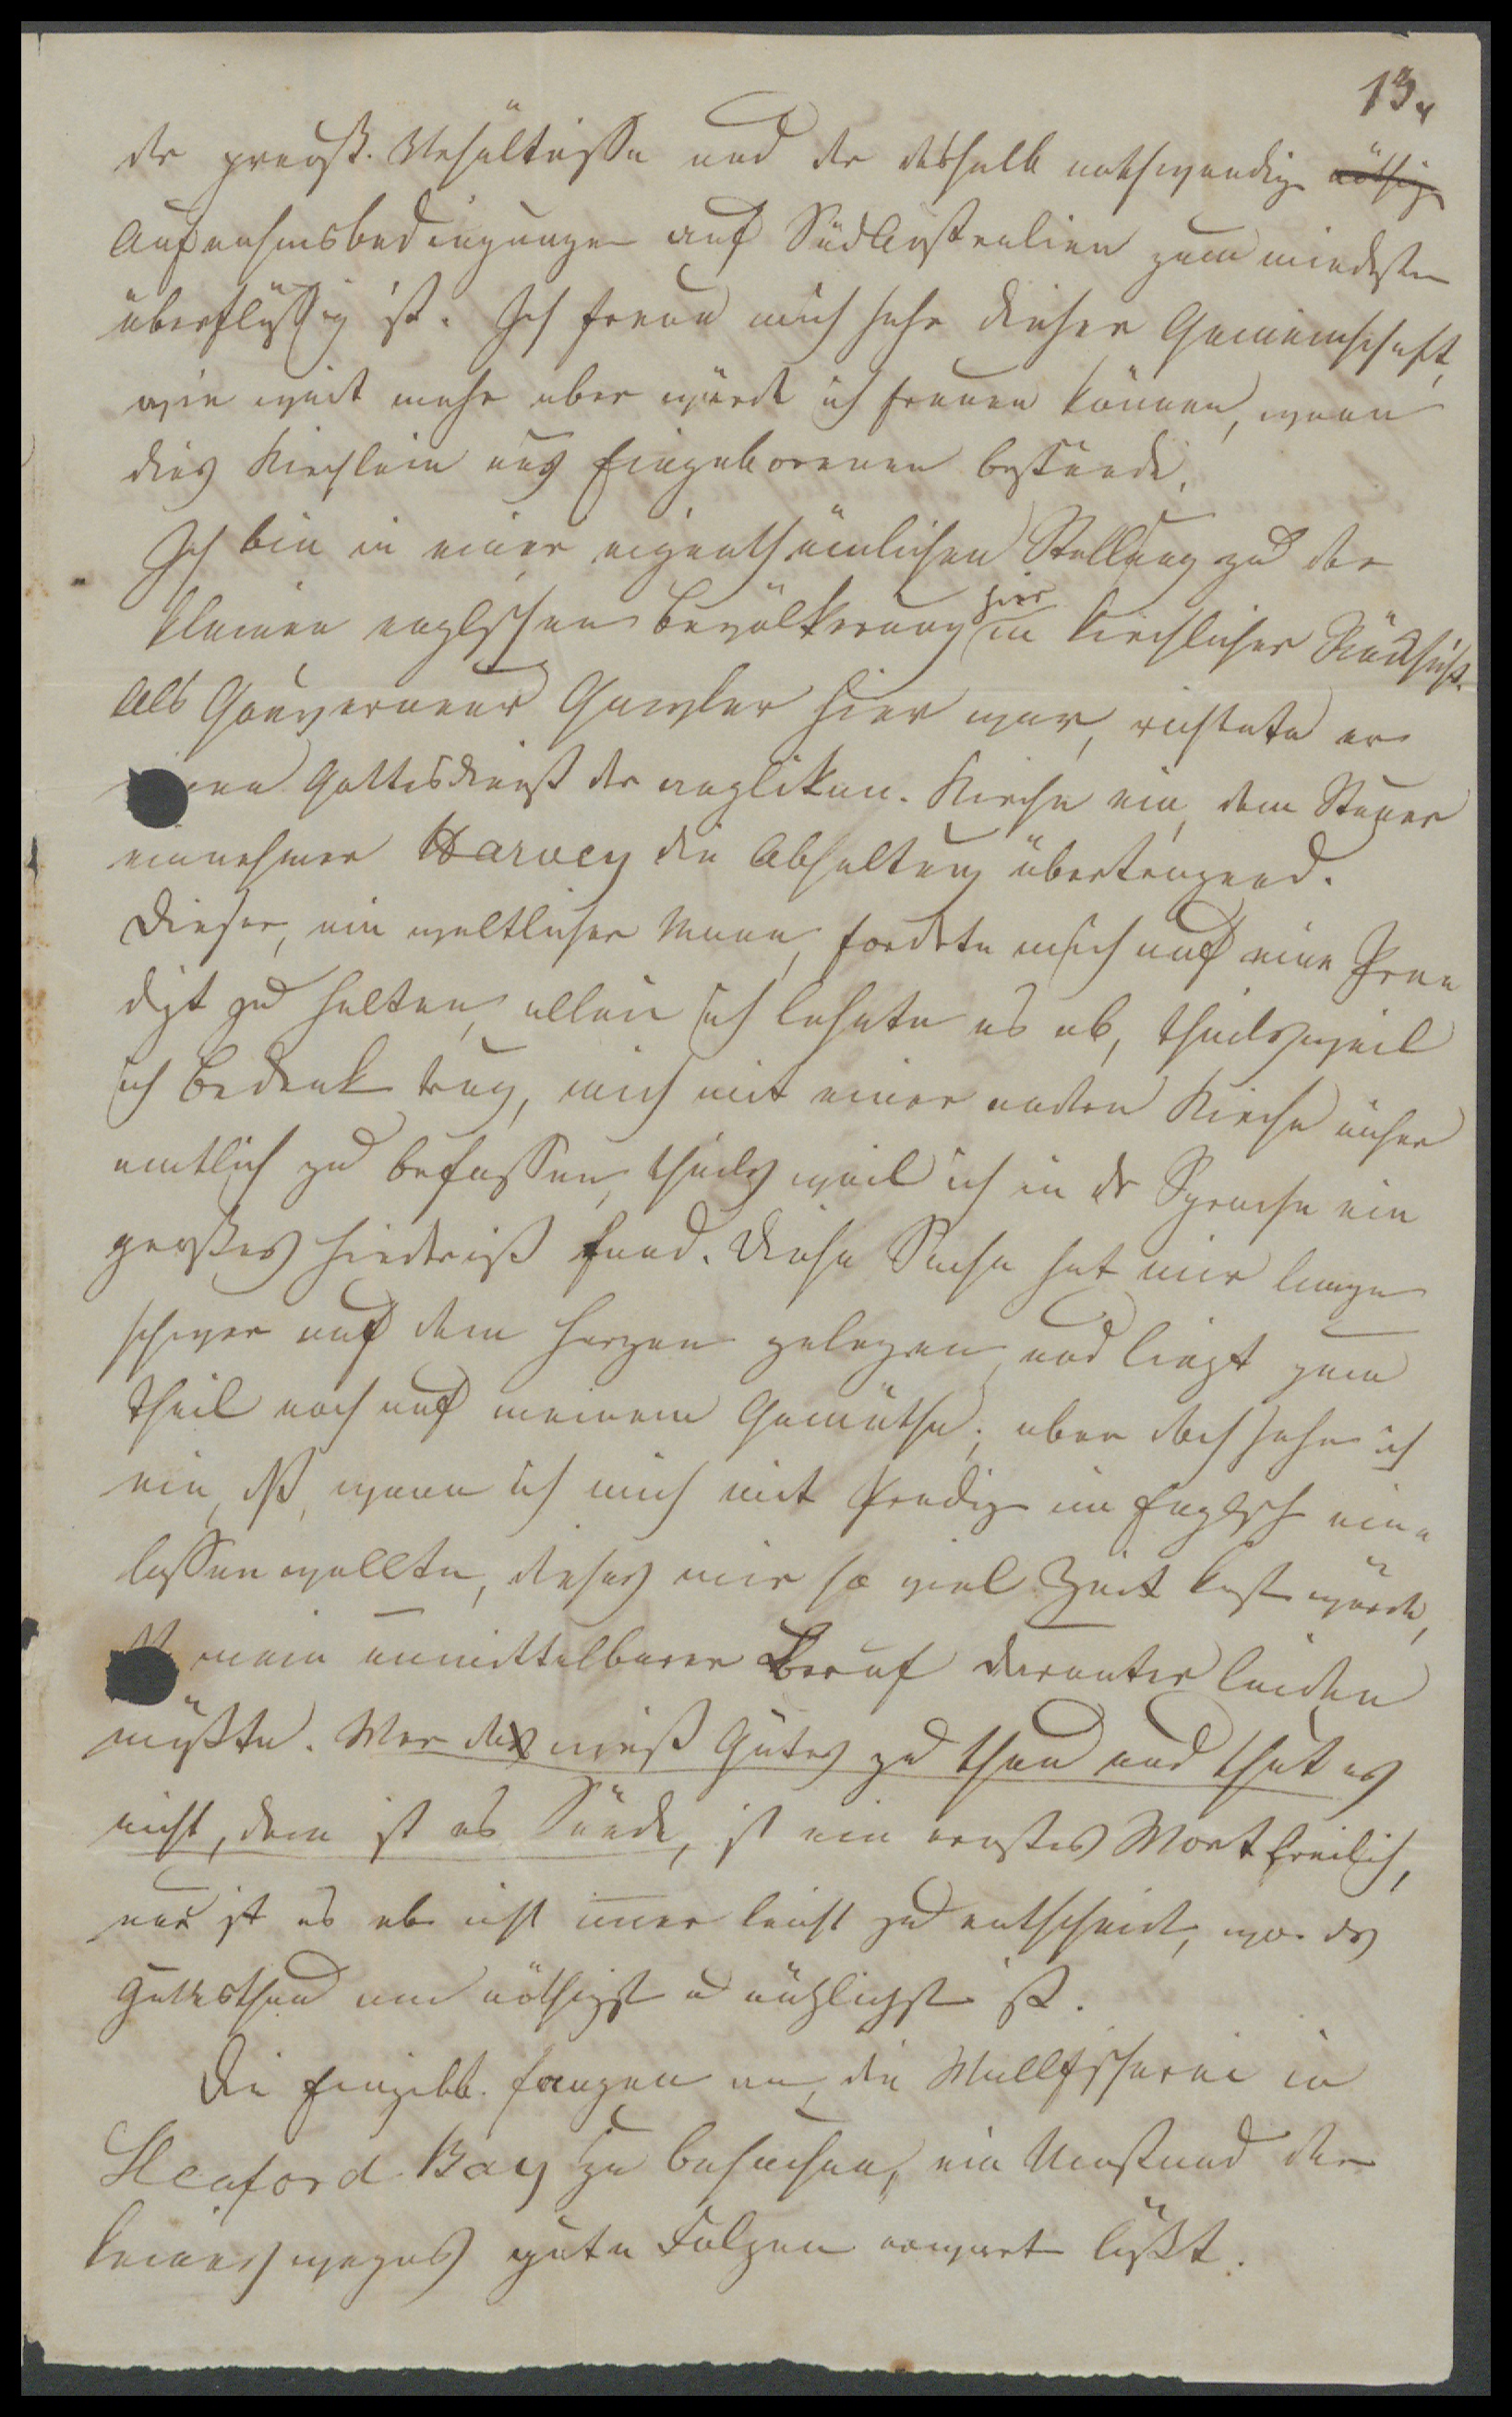 13.
der preuß. Verhältnisse und der deshalb nothwendigen nöthigen
Aufnahmsbedingungen auf Südaustralien zum mindesten
überflüssig ist. Ich freue mich sehr dieser Gemeinschaft,
wie weit mehr aber würde ich freuen können, wenn
dies Kirchlein aus Eingeborenen bestände.
Ich bin in einer eigenthümlichen Stellung zu der
kleinen englischen Bevölkerung hier in kirchlicher Rücksicht.
Als Gouverneur Gawler hier war, richtete er
einen Gottesdienst der anglikan. Kirche ein, dem Steuer
einnehmer Harvey die Abhaltung übertragend.
Dieser, ein weltlicher Mann, forderte mich auf eine Pre
digt zu halten, allein ich lehnte es ab, theils weil
ich Bedenken trug, mich mit einer anderen Kirche näher
amtlich zu befassen, theils weil ich in der Sprache ein
großes Hinderniß fand. Diese Sache hat mir lange
schwer auf dem Herzen gelegen und liegt zum
Theil noch auf meinem Gemüthe; aber doch sehe ich
ein, daß, wenn ich mich mit Predigen im Englisch ein=
lassen wollte, dieses mir so viel Zeit kosten würde,
daß mein unmittelbarer Beruf darunter leiden
müßte. Wer da weiß Gutes zu thun und thut es
nicht, dem ist es Sünde, ist ein ernstes Wort freilich,
nur ist es aber nicht immer leicht zu entscheiden, wo das
Gutesthun am nöthigsten u nützlichsten ist.
Die Eingebb. fangen an, die Wallfischerei in
Sleaford Bay zu besuchen, ein Umstand der
keineswegs gute Folgen erwarten läßt.